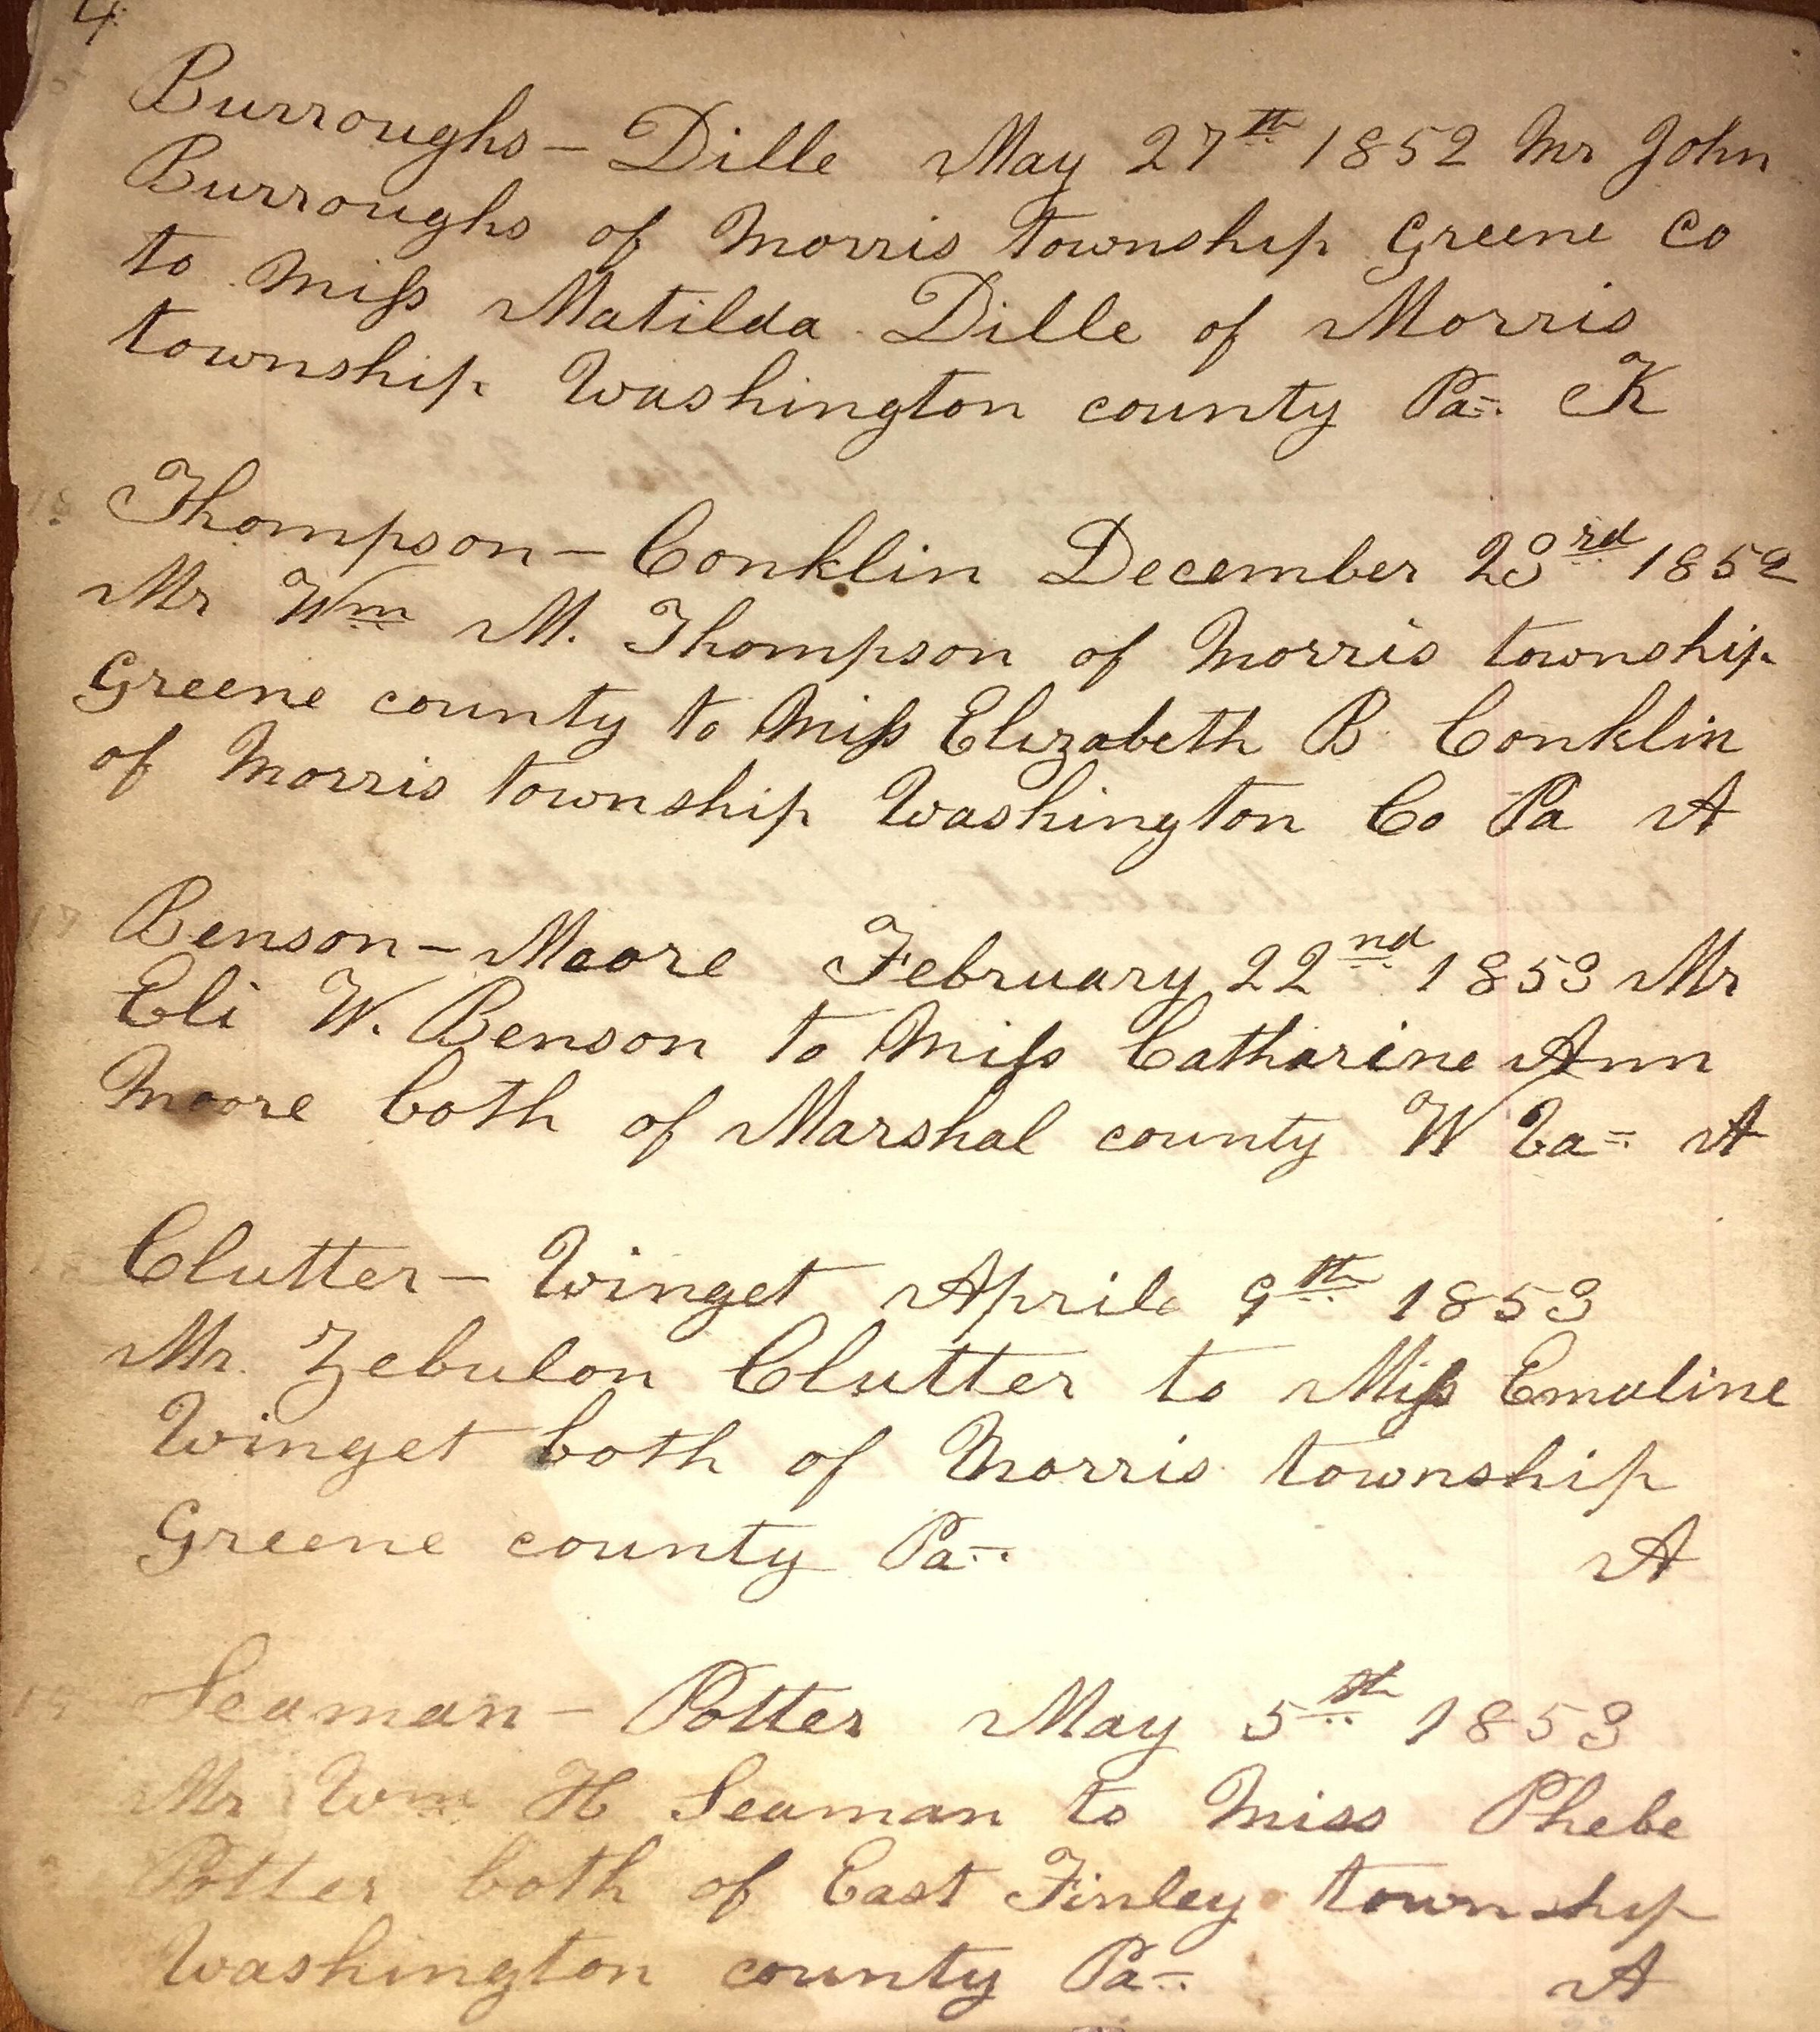 4
Burroughs – Dille May 27th 1852 Mr John
Burroughs of Morris township Greene Co
to Miss Matilda Dille of Morris
township Washington county Pa. K
Thompson – Conklin December 23rd 1852
Mr Wm M. Thompson of Morris township
Greene county to Miss Elizabeth B Conklin
of Morris township Washington Co Pa A
17 Benson – Moore February 22nd 1853 Mr
Eli W. Benson to Miss Catharine Ann
Moore both of Marshal county W Va A
Clutter – Winget Aprile 9th 1853
Mr. Zebulon Clutter to Miss Emaline
Winget both of Morris township
Greene county Pa. A
19 Seaman – Potter May 5th 1853
Mr Wm H Seaman to Miss Phebe
Potter both of East Finley township
Washington county Pa. A